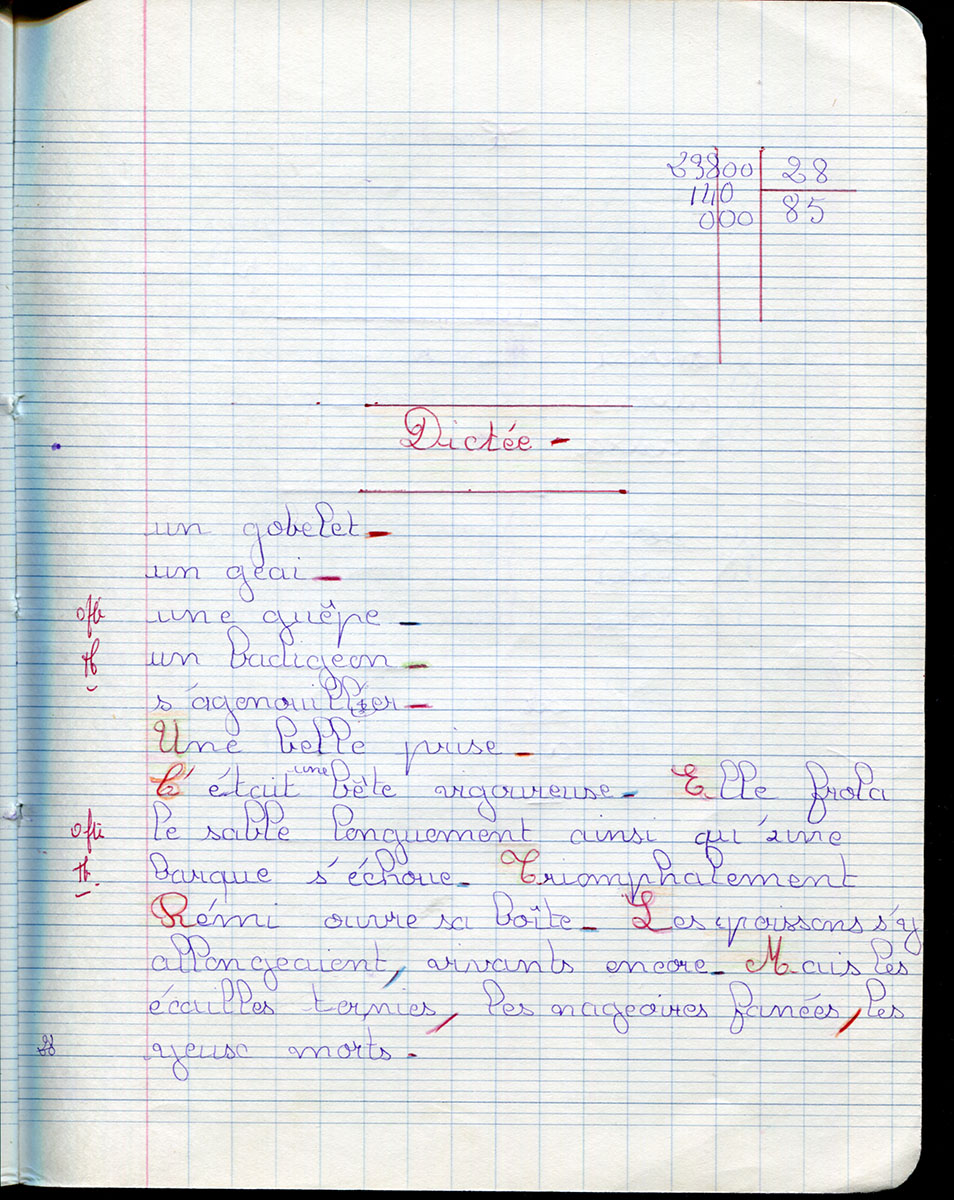 23800 28
140 85
000
Dictée -
un gobelet -
un geai -
une guêpe -
un badigeon -
s'agenouiller -
Une belle prise -
C'était une bête vigoureuse - Elle frola
le sable longuement ainsi qu'une
barque s'échoue - Triomphalement
Rémi ouvre sa boîte - Les poissons s'y
allongeaient, vivants encore - Mais les
écailles ternies, les nageoires fanées, les
yeux morts -